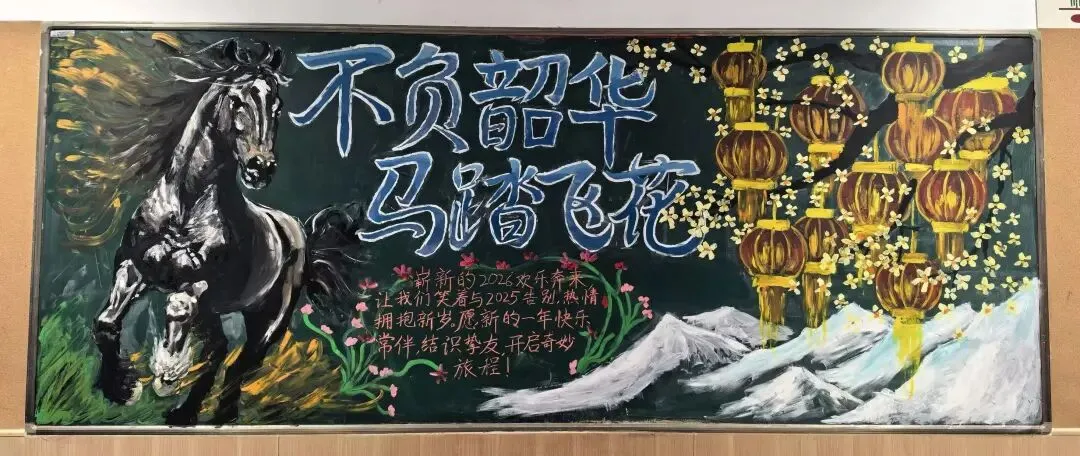 不负韶华
马踏飞花
崭新的2026欢乐奔来
让我们笑着与2025告别,热情
拥抱新岁。愿新的一年快乐
常伴,结识挚友,开启奇妙
旅程!